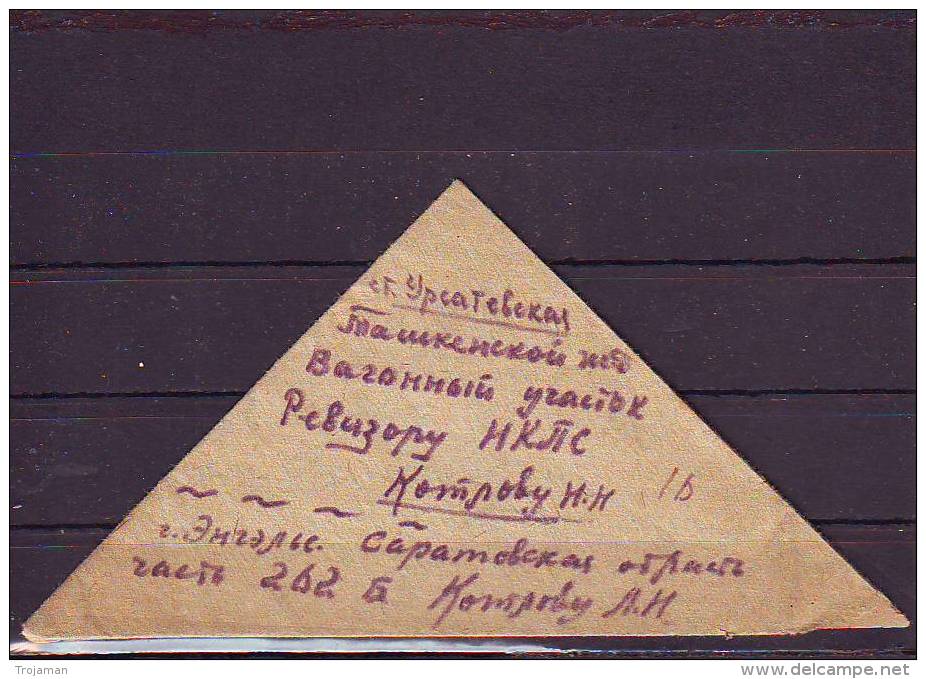 ст. Урсатевская
Ташкенской жд
Вагонный участок
Ревизору НКПС
Котрову Н.Н 1Б
г. Энгэльс. Саратовская область
часть 262 Б Котрову Л.Н
Trojaman
delcampe.net